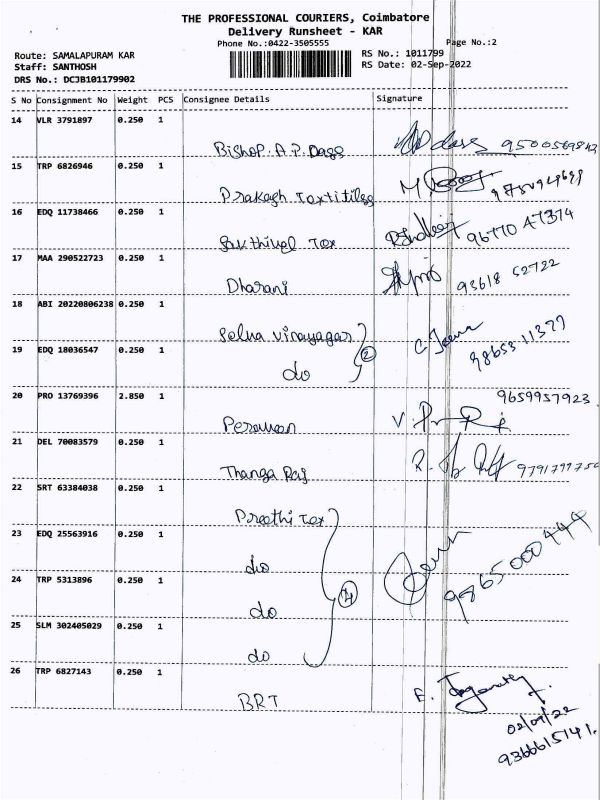 THE PROFESSIONAL COURIERS, Coimbatore
Delivery Runsheet - KAR
Phone No.:0422-3505555
Page No.:2
Route: SAMALAPURAM KAR
RS No.: 1011799
Staff: SANTHOSH
RS Date: 02-Sep-2022
DRS No.: DCJB101179902
S No Consignment No Weight PCS Consignee Details Signature
14 VLR 3791897 0.250 1
Bishop. A.P. Dass
15 TRP 6826946 0.250 1
Prakash Textitiles
16 EDQ 11738466 0.250 1
Sakthivel Tex
17 MAA 290522723 0.250 1
Dharani 93618 52722
18 ABI 20220806238 0.250 1
Selva vinayagar
19 EDQ 18036547 0.250 1
do 2 98653 11377
20 PRO 13769396 2.850 1
9659957923
21 DEL 70083579 0.250 1
Thanga Raj
22 SRT 63384038 0.250 1
Preethi Tex
23 EDQ 25563916 0.250 1
do 9865000444
24 TRP 5313896 0.250 1
do 4
25 SLM 302405029 0.250 1
do
26 TRP 6827143 0.250 1
BRT
02/09/22
9366615141.